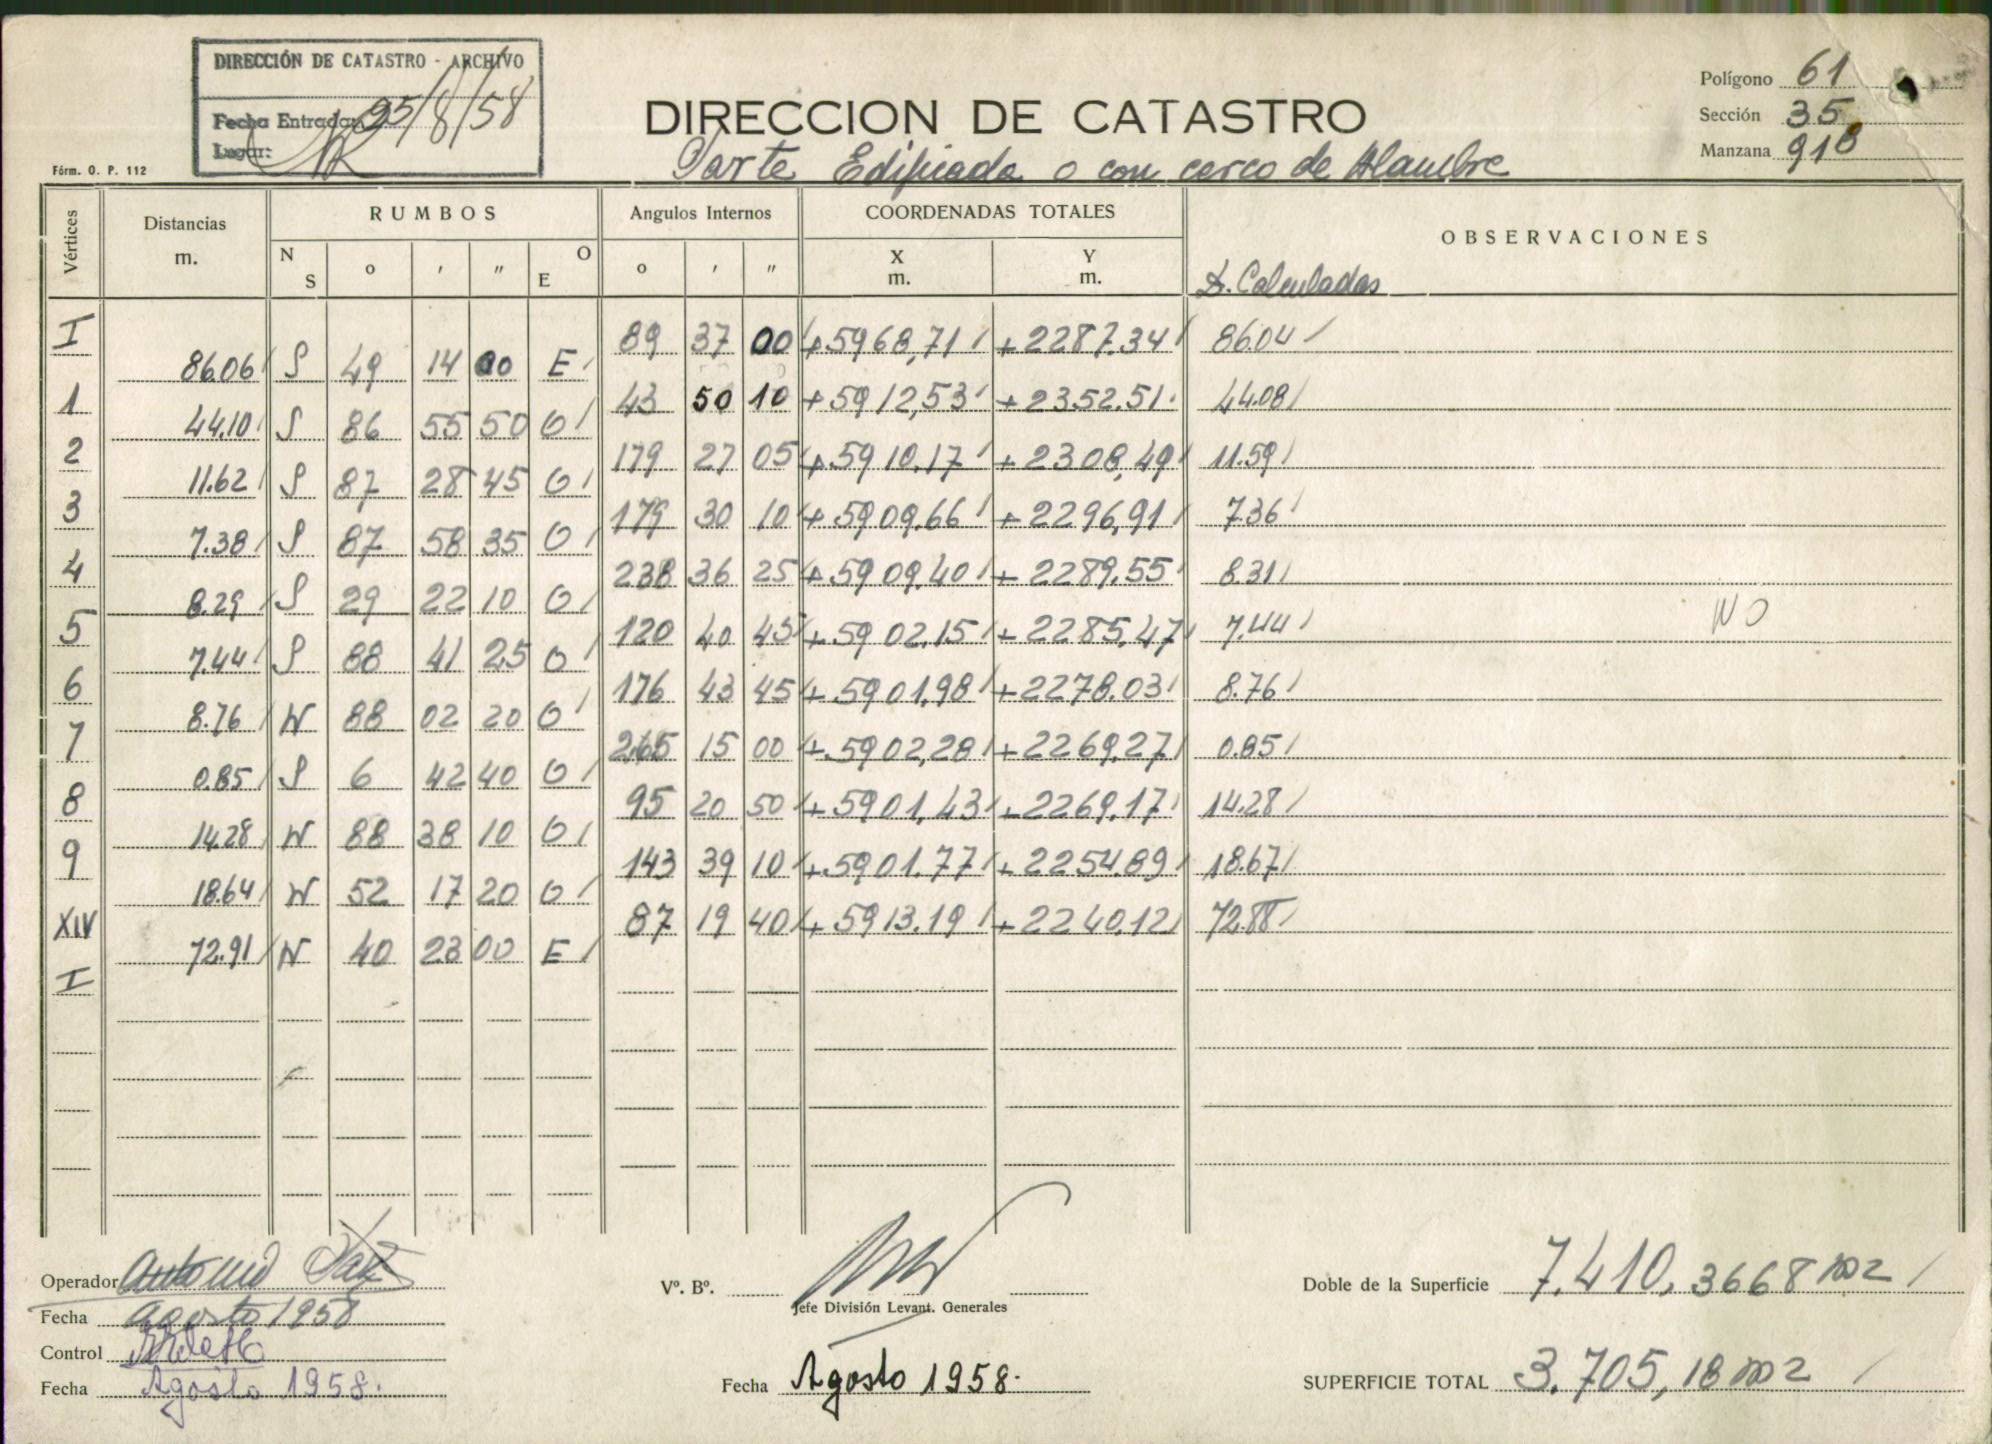 DIRECCIÓN DE CATASTRO - ARCHIVO
Fecha Entrada: 25/8/58
Lugar:
Fórm. O. P. 112
DIRECCION DE CATASTRO
Parte Edificada o con cerco de Alambre
Polígono 61
Sección 35
Manzana 918
Vértices Distancias m. RUMBOS Angulos Internos COORDENADAS TOTALES OBSERVACIONES
N S o ' " O E o ' " X m. Y m. D. Calculadas
I 89 37 00 +5968,71 +2287.34 86.04
86.06 S 49 14 00 E
1 43 50 10 +5912,53 +2352.51 44.08
44.10 S 86 55 50 O
2 179 27 05 +5910.17 +2308,49 11.59
11.62 S 87 28 45 O
3 179 30 10 +5909.66 +2296,91 7.36
7.38 S 87 58 35 O
4 238 36 25 +5909,40 +2289.55 8.31
8.29 S 29 22 10 O
5 120 40 45 +5902.15 +2285.47 7.44 NO
7.44 S 88 41 25 O
6 176 43 45 +5901,98 +2278.03 8.76
8.76 N 88 02 20 O
7 265 15 00 +5902,28 +2269,27 0.85
0.85 S 6 42 40 O
8 95 20 50 +5901.43 +2269.17 14.28
14.28 N 88 38 10 O
9 143 39 10 +5901.77 +2254.89 18.67
18.64 N 52 17 20 O
XIV 87 19 40 +5913.19 +2240,12 72.88
72.91 N 40 23 00 E
I
Operador Antonio
Fecha agosto 1958
Control
Fecha Agosto 1958.
V°. B°.
Jefe División Levant. Generales
Fecha Agosto 1958.
Doble de la Superficie 7.410,3668 m2
SUPERFICIE TOTAL 3.705,18 m2